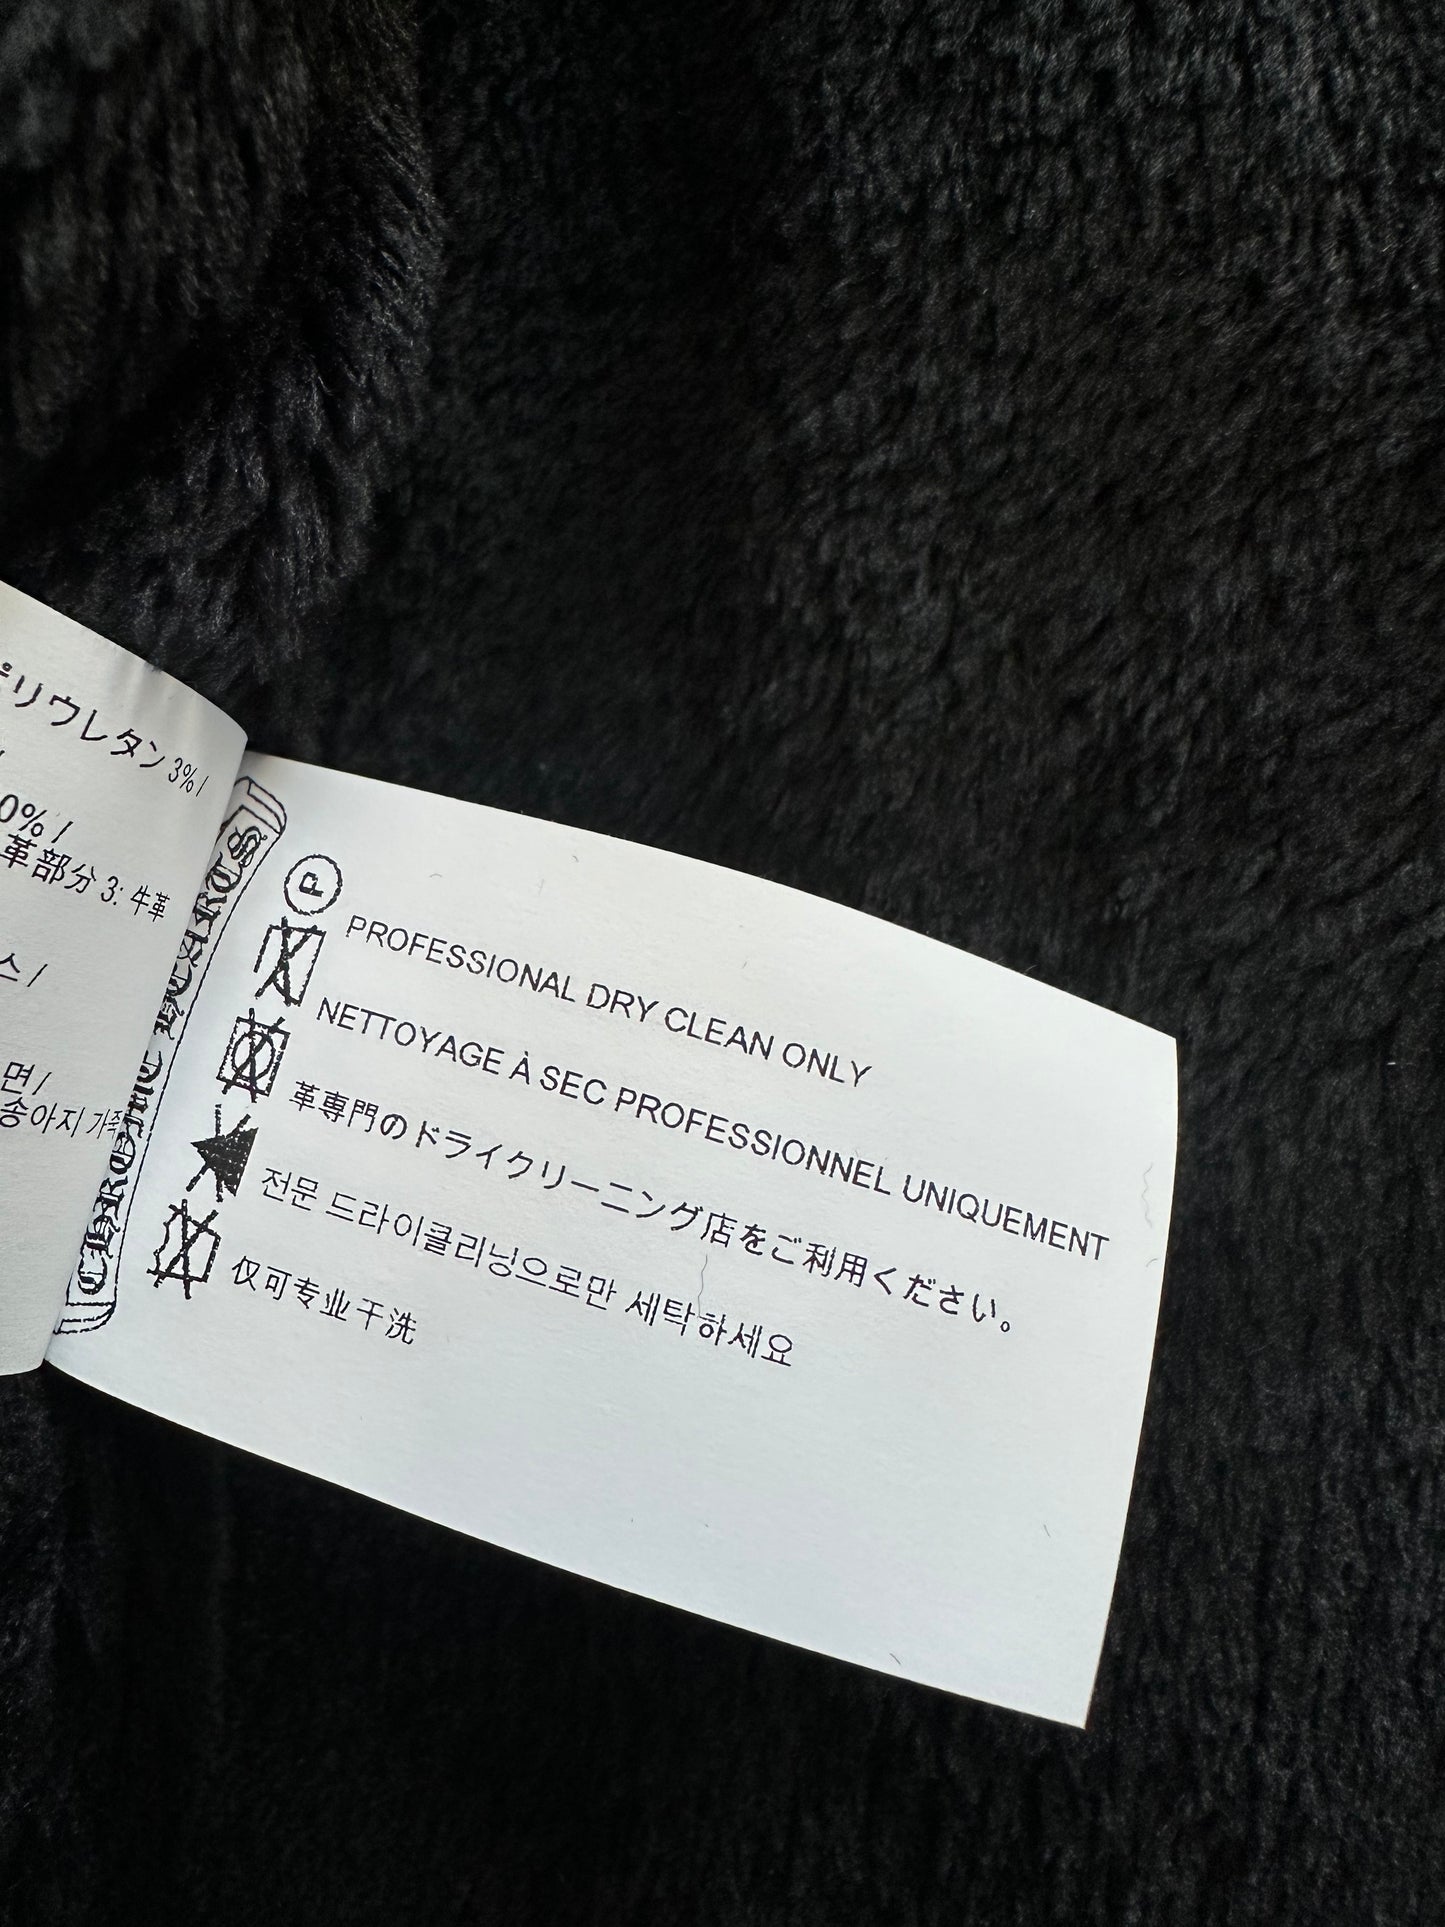 ポリウレタン 3% /
0% /
革部分 3: 牛革
스 /
면 /
송아지 가죽
CHROME HEARTS
P
PROFESSIONAL DRY CLEAN ONLY
NETTOYAGE À SEC PROFESSIONNEL UNIQUEMENT
革専門のドライクリーニング店をご利用ください。
전문 드라이클리닝으로만 세탁하세요
仅可专业干洗